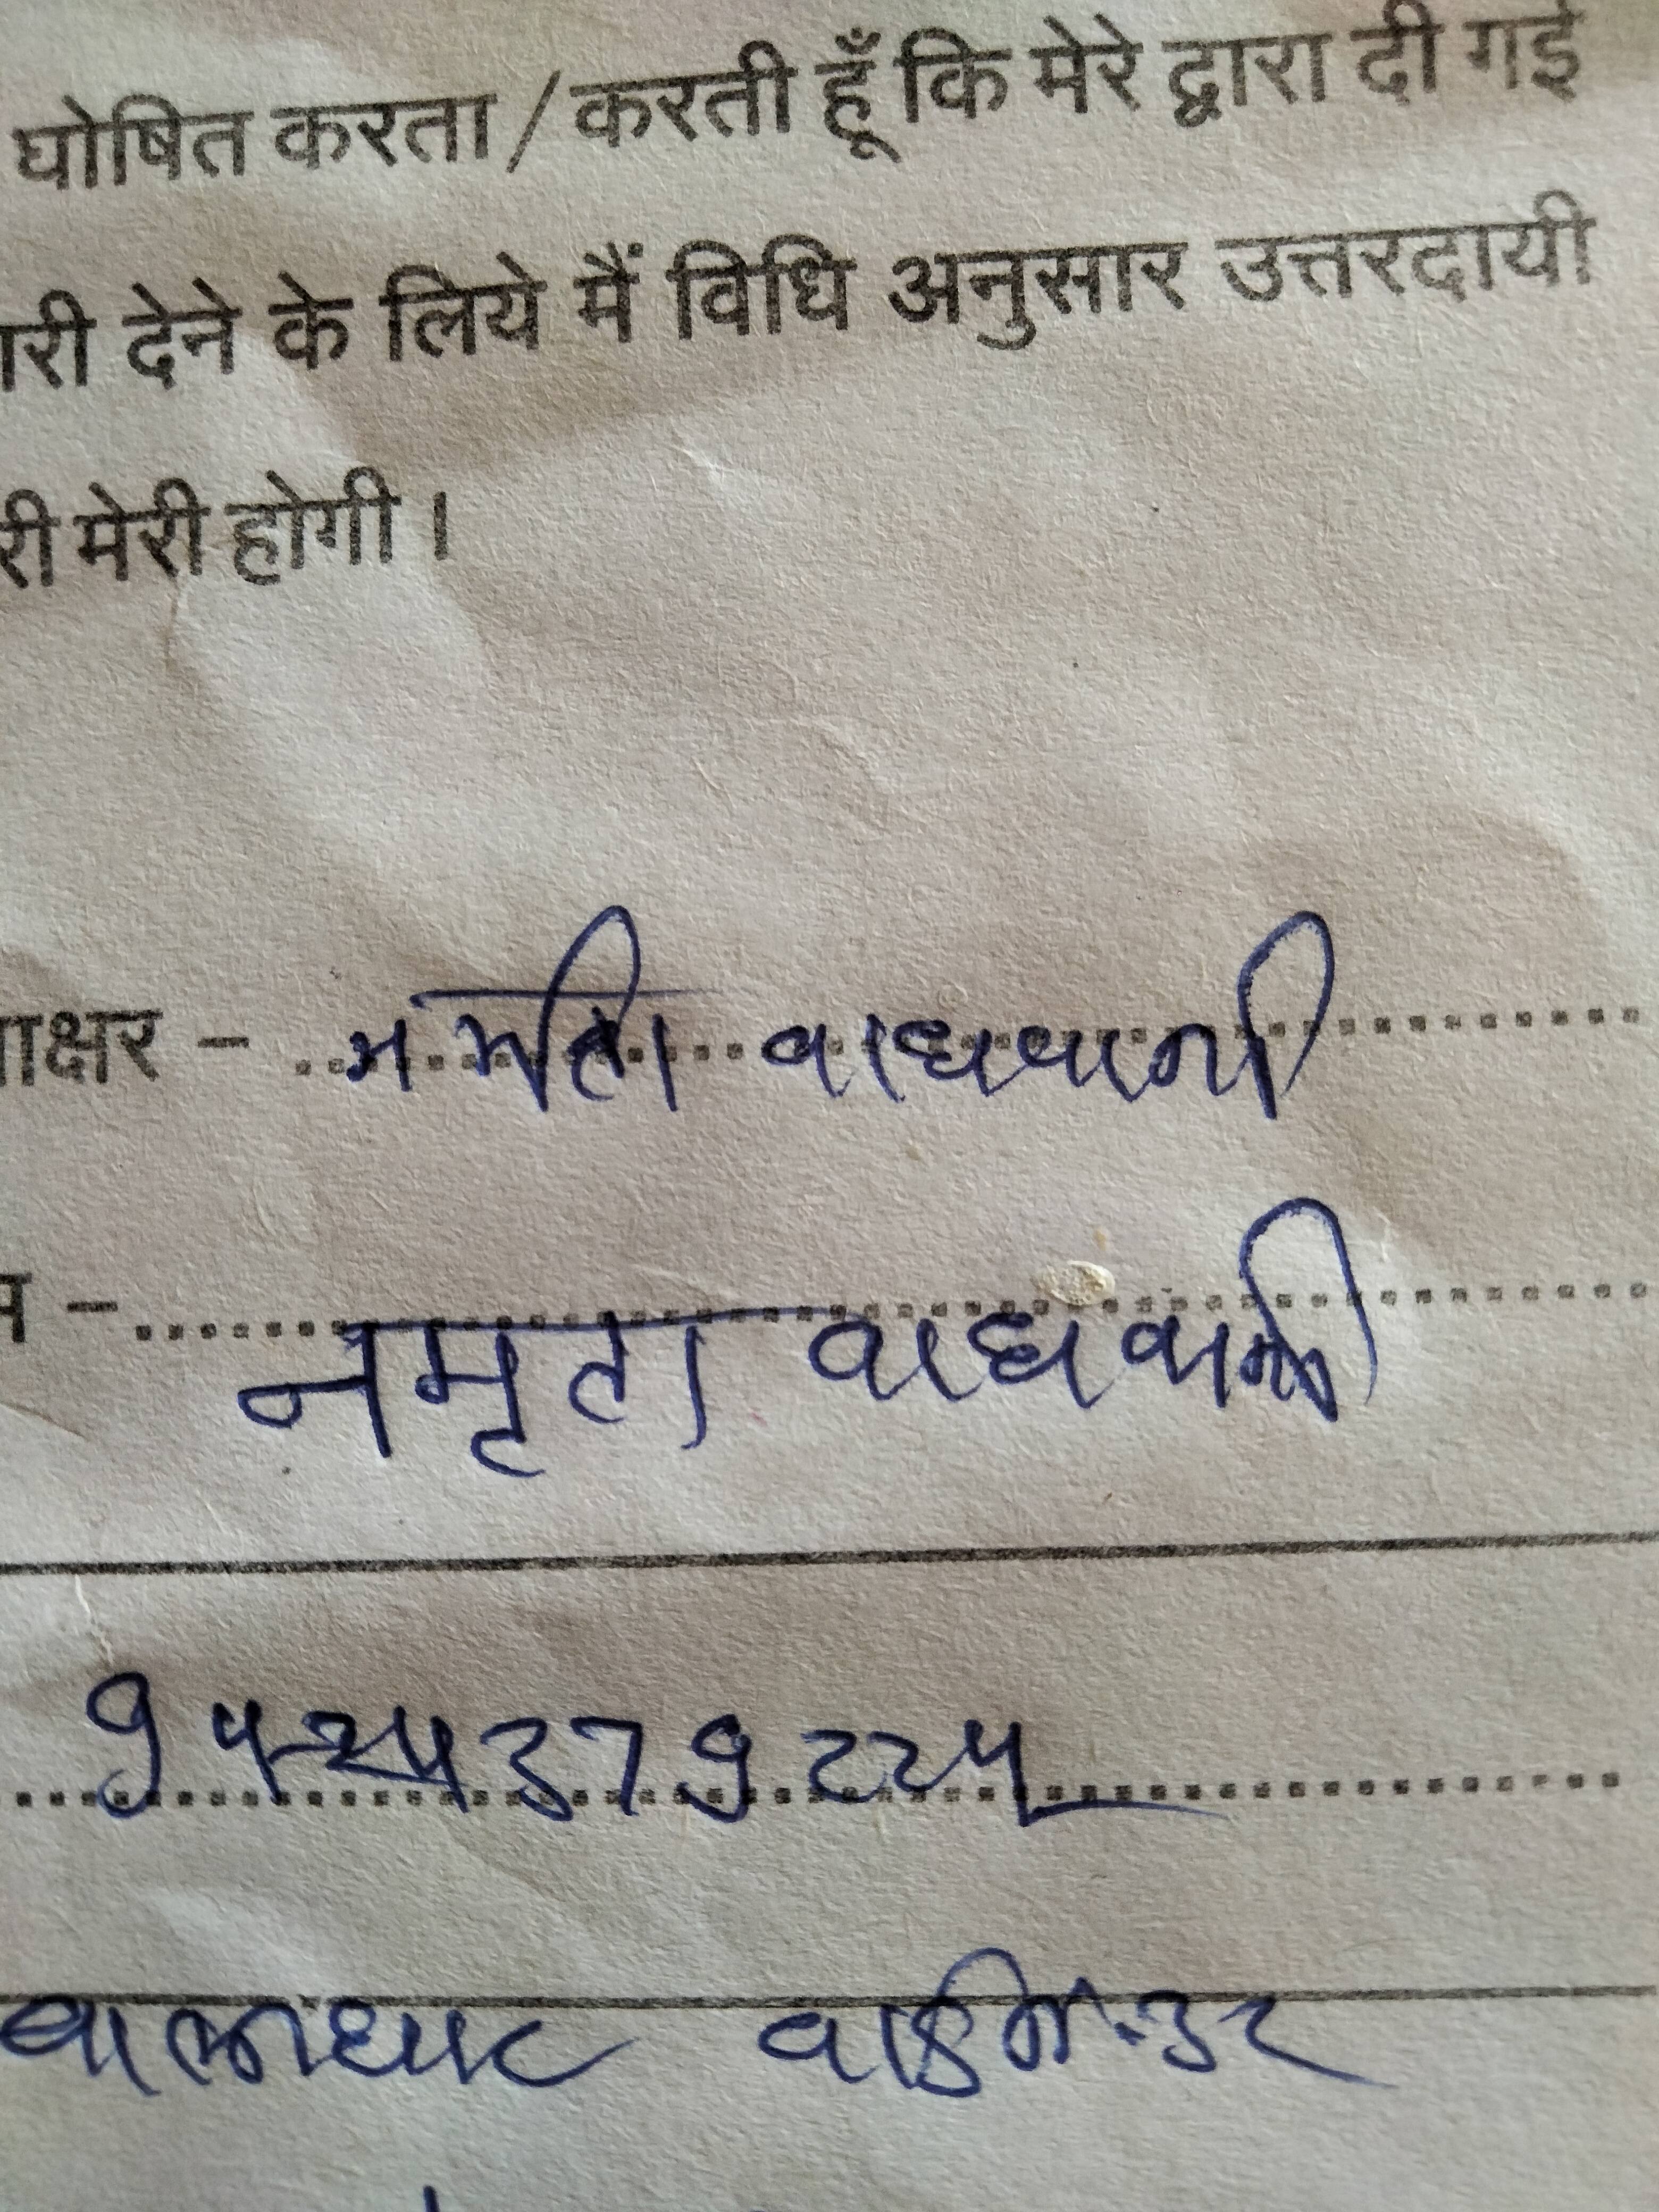 घोषित करता / करती हूँ कि मेरे द्वारा दी गई
ारी देने के लिये मैं विधि अनुसार उत्तरदायी
री मेरी होगी।
ाक्षर - वाधवानी
म - नमृता वाधवानी
बालाघाट वार्ड